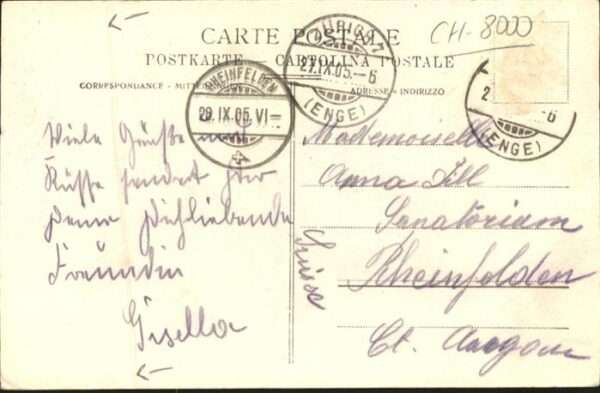 CARTE POSTALE
CH-8000
POSTKARTE — CARTOLINA POSTALE
CORRESPONDANCE - ADRESSE - INDIRIZZO
ZÜRICH
29.IX.05.-6
(ENGE)
RHEINFELDEN
29.IX.05.VI-
6
(ENGE)
Viele Grüsse und
Küsse sendet
Deine Dichliebende
Freundin
Gisella
Mademoiselle
Anna Ill
Sanatorium
Rheinfelden
Ct. Aargau
Suisse